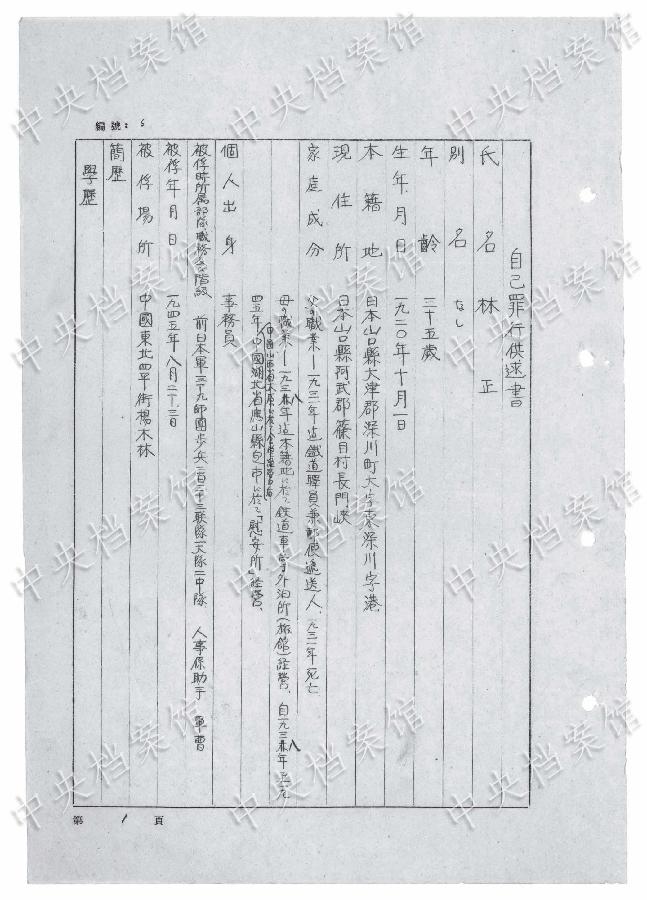 編號：6
自己罪行供述書
氏名 林 正
別名 なし
年齡 三十五歳
生年月日 一九二〇年十月一日
本籍地 日本山口縣大津郡深川町大字東深川字港
現住所 日本山口縣阿武郡篠目村長門峽
家庭成分 父の職業——一九三一年迄鐵道驛員兼郵便遞送人、一九三一年死亡
母の職業——一九三八年迄本籍地に於て鉄道車掌外泊所（旅館）経営、自一九三八年至一九
四五年、中國湖北省應山縣 に於て「慰安所」経営、
個人出身 事務員
被俘時所属部隊職務及階級 前日本軍三十九師團歩兵二百三十三聯隊一大隊二中隊 人事係助手 軍曹
被俘年月日 一九四五年八月二十三日
被俘場所 中國東北四平街楊木林
簡歷
學歷
第 1 頁
中央档案馆